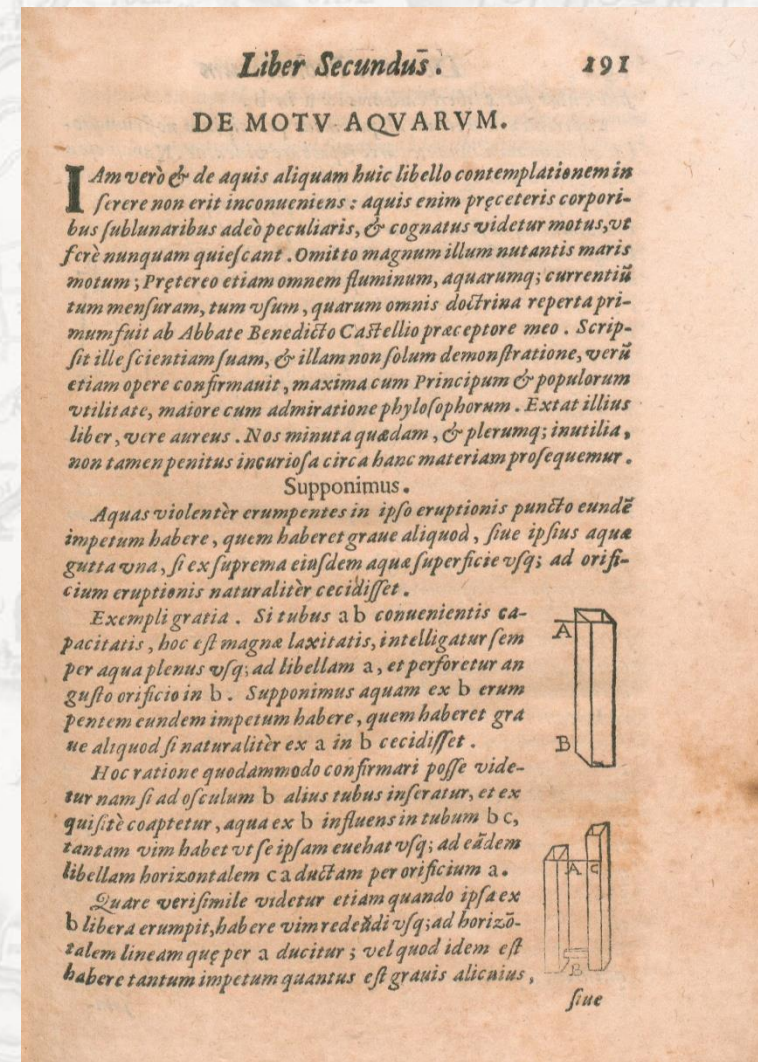 Liber Secundus̄. 191
DE MOTV AQVARVM.
IAm verò & de aquis aliquam huic libello contemplationem in
serere non erit inconueniens : aquis enim pręceteris corpori-
bus sublunaribus adeò peculiaris, & cognatus videtur motus, vt
ferè nunquam quiescant . Omitto magnum illum nutantis maris
motum ; Prętereo etiam omnem fluminum, aquarumq; currentiū
tum mensuram, tum vsum , quarum omnis doctrina reperta pri-
mum fuit ab Abbate Benedicto Castellio præceptore meo . Scrip-
sit ille scientiam suam, & illam non solum demonstratione, verū
etiam opere confirmauit , maxima cum Principum & populorum
vtilitate, maiore cum admiratione phylosophorum . Extat illius
liber , vere aureus . Nos minuta quædam , & plerumq; inutilia ,
non tamen penitus incuriosa circa hanc materiam prosequemur .
Supponimus.
Aquas violentèr erumpentes in ipso eruptionis puncto eundē
impetum habere , quem haberet graue aliquod , siue ipsius aquæ
gutta vna , si ex suprema eiusdem aquæ superficie vsq; ad orifi-
cium eruptionis naturalitèr cecidisset .
Exempli gratia . Si tubus ab conuenientis ca-
pacitatis , hoc est magnæ laxitatis, intelligatur sem
per aqua plenus vsq; ad libellam a, et perforetur an
gusto orificio in b . Supponimus aquam ex b erum
pentem eundem impetum habere , quem haberet gra
ue aliquod si naturalitèr ex a in b cecidisset .
A
B
Hoc ratione quodammodo confirmari posse vide-
tur nam si ad osculum b alius tubus inseratur, et ex
quisitè coaptetur , aqua ex b influens in tubum bc,
tantam vim habet vt se ipsam euehat vsq; ad eādem
libellam horizontalem ca ductam per orificium a.
Quare verisimile videtur etiam quando ipsa ex
b libera erumpit, habere vim redeūdi vsq; ad horizō-
talem lineam quę per a ducitur ; vel quod idem est
habere tantum impetum quantus est grauis alicuius ,
A C
B
siue